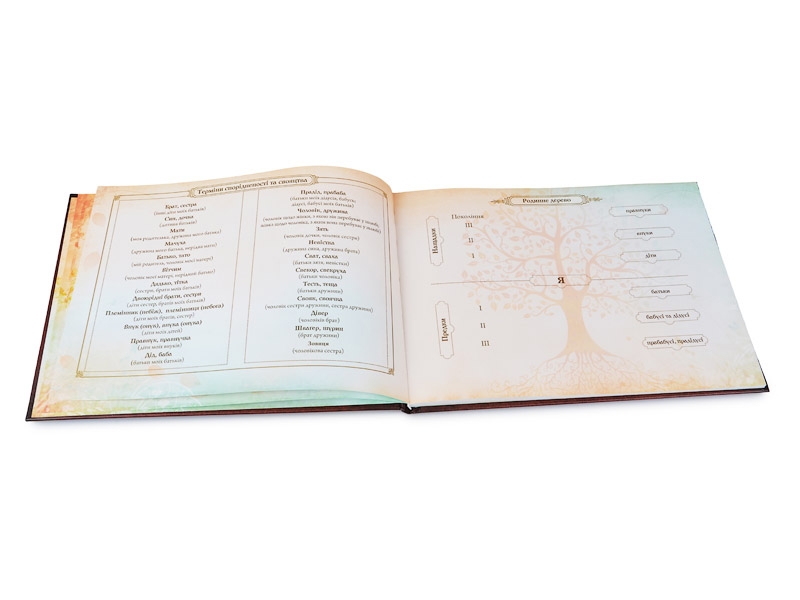 Терміни спорідненості та свояцтва
Брат, сестра
(інші діти моїх батьків)
Син, дочка
(дитина батьків)
Мати
(моя родителька, дружина мого батька)
Мачуха
(дружина мого батька, нерідна мати)
Батько, тато
(мій родитель, чоловік моєї матері)
Вітчим
(чоловік моєї матері, нерідний батько)
Дядько, тітка
(сестри, брати моїх батьків)
Двоюрідні брати, сестри
(діти сестер, братів моїх батьків)
Племінник (небіж), племінниця (небога)
(діти моїх братів, сестер)
Внук (онук), внука (онука)
(діти моїх дітей)
Правнук, правнучка
(діти моїх внуків)
Дід, баба
(батьки моїх батьків)
Прадід, прабаба
(батьки моїх дідусів, бабусь;
дідусі, бабусі моїх батьків)
Чоловік, дружина
Зять
(чоловік дочки, чоловік сестри)
Невістка
(дружина сина, дружина брата)
Сват, сваха
(батьки зятя, невістки)
Свекор, свекруха
(батьки чоловіка)
Тесть, теща
(батьки дружини)
Свояк, своячка
(чоловік сестри дружини, сестра дружини)
Дівер
(чоловіків брат)
Шваґер, шурин
(брат дружини)
Зовиця
(чоловікова сестра)
Родинне дерево
Нащадки
Покоління
III
II
I
правнуки
внуки
діти
Я
Предки
I
II
III
батьки
бабусі та дідусі
прабабусі, прадідусі